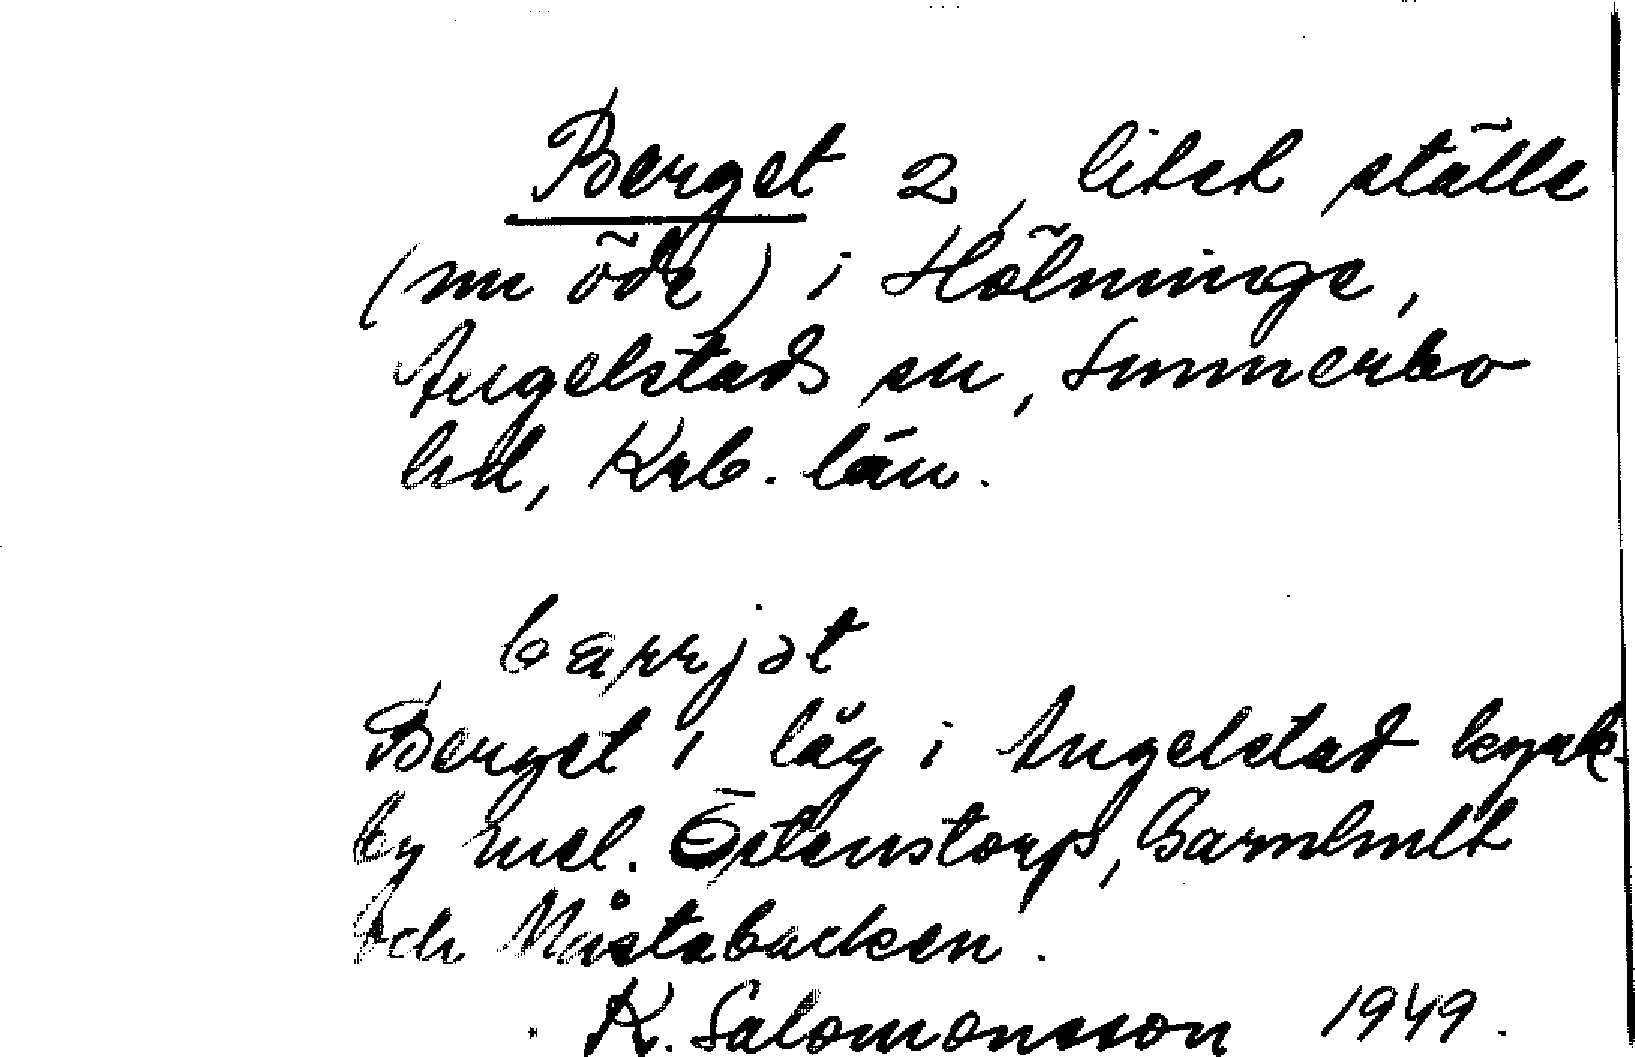 Berget 2, litet ställe
(nu öde) i Hölminge,
Angelstads sn, Sunnerbo
hd, Krb. län.
bærrjət
Berget 1 låg i Angelstad kyrk-
by mel. Östenstorp, Barnhult
och Måstabacken.
K. Salomonsson 1949.